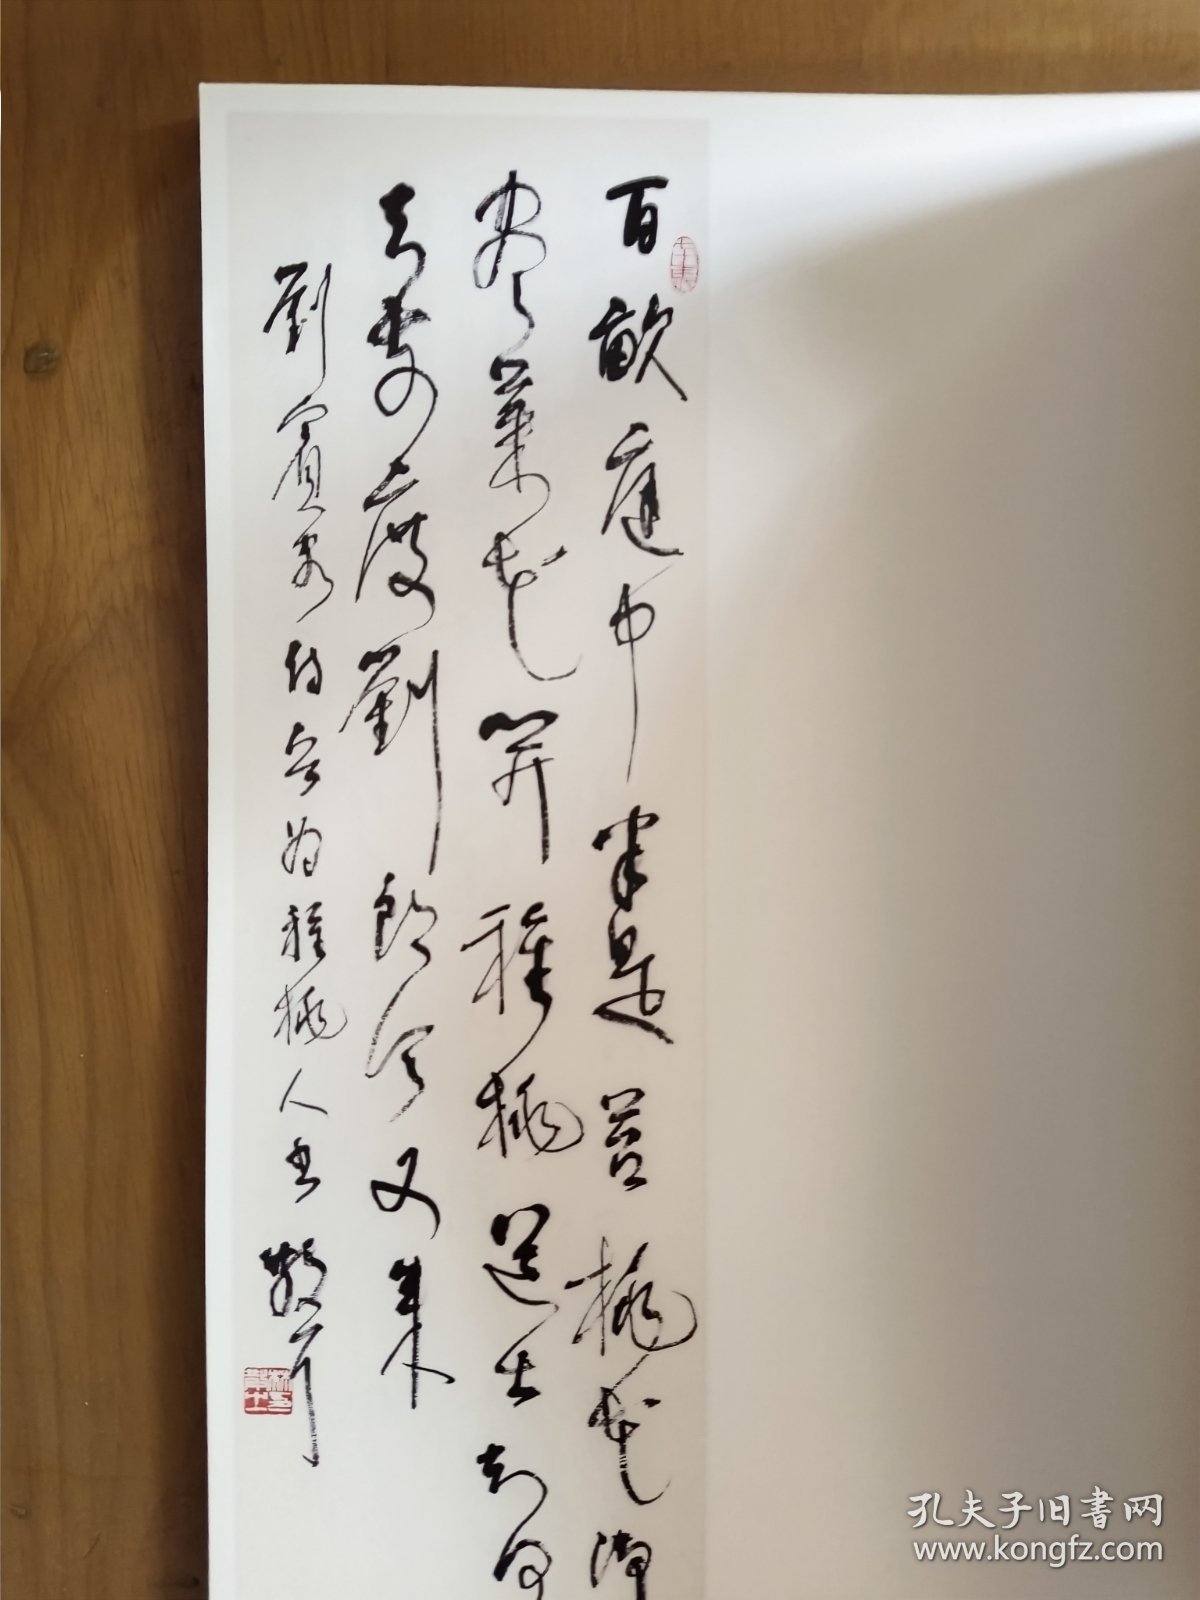 百畝庭中半是苔桃花淨
盡菜花開種桃道士知何
處前度劉郎今又來
劉賓客詩為種桃人書 散耳
孔夫子旧书网
www.kongfz.com